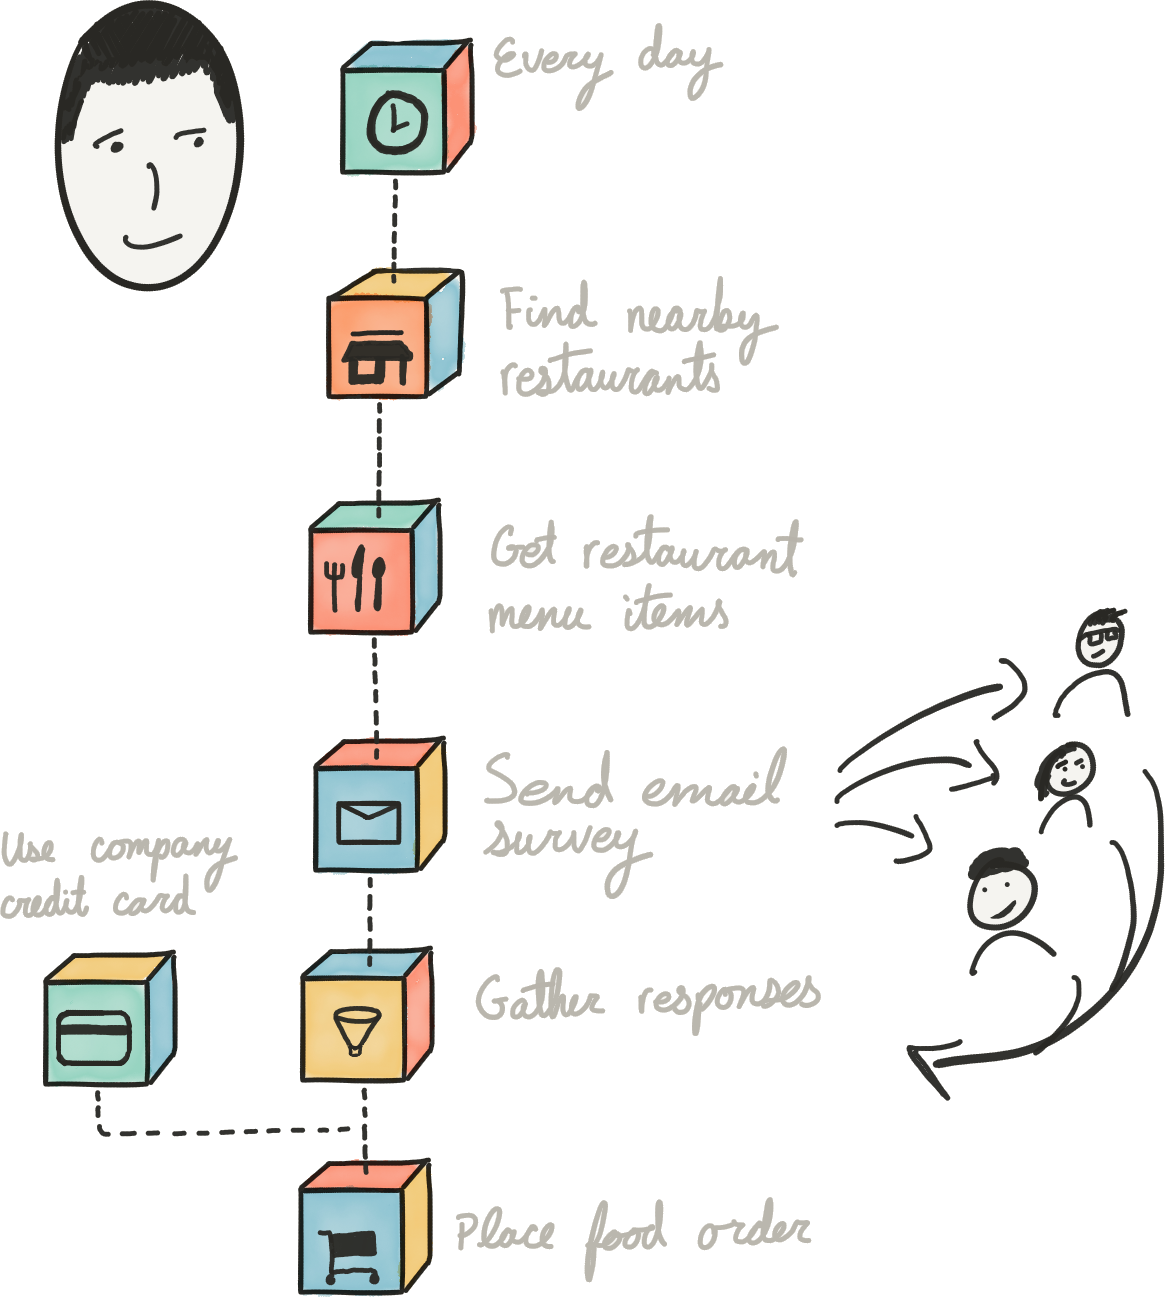 Every day
Find nearby
restaurants
Get restaurant
menu items
Send email
survey
Use company
credit card
Gather responses
Place food order